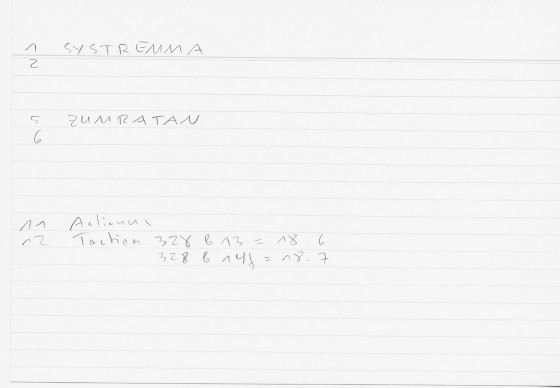 1 SYSTREMMA
2
5 ZUMRATAN
6
11 Aelianus
12 Taktien 328 b 13 = 18.6
328 b 14f = 18.7